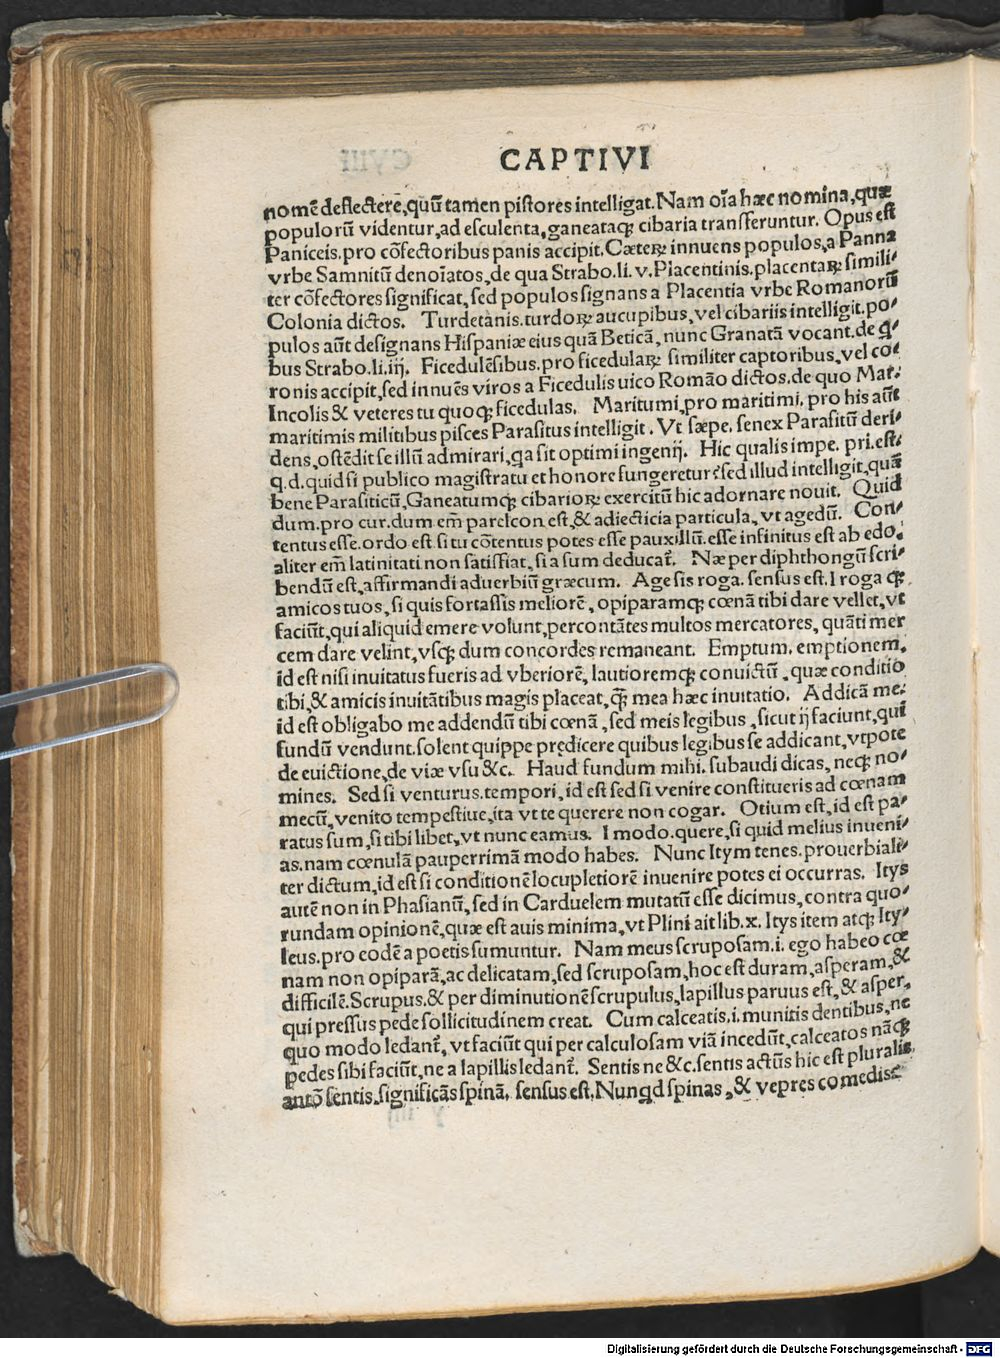 CAPTIVI
nomē deflectere, quū tamen pistores intelligat. Nam oīa hæc nomina, quæ
populorū videntur, ad esculenta, ganeataqꝫ cibaria transferuntur. Opus est
Paniceis. pro cōfectoribus panis accipit. Cæteꝝ innuens populos, a Panna
vrbe Samnitū denoīatos, de qua Strabo. li. v. Placentinis. placentaꝝ simili⸗
ter cōfectores significat, sed populos signans a Placentia vrbe Romanorū
Colonia dictos. Turdetanis. turdoꝝ aucupibus, vel cibariis intelligit. po⸗
pulos aūt designans Hispaniæ eius quā Beticā, nunc Granatā vocant. de q̄⸗
bus Strabo. li. iij. Ficedulēsibus. pro ficedulaꝝ similiter captoribus, vel co⸗
ronis accipit, sed innuēs viros a Ficedulis uico Romāo dictos. de quo Mat.
Incolis & veteres tu quoqꝫ ficedulas. Maritumi, pro maritimi. pro his aūt
maritimis militibus pisces Parasitus intelligit. Vt sæpe. senex Parasitū deri⸗
dens, ostēdit se illū admirari, qa sit optimi ingenij. Hic qualis impe. pri. est.
q. d. quid si publico magistratu et honore fungeretur? sed illud intelligit, quā
bene Parasiticū, Ganeatumqꝫ cibarioꝝ exercitū hic adornare nouit. Quid
dum. pro cur. dum em̄ parelcon est, & adiecticia particula, vt agedū. Con⸗
tentus esse. ordo est si tu cōtentus potes esse pauxillū. esse infinitus est ab edo.
aliter em̄ latinitati non satisfiat, si a sum deducat̄. Næ per diphthongū scri⸗
bendū est, affirmandi aduerbiū græcum. Age sis roga. sensus est. I roga qꝫ
amicos tuos, si quis fortassis meliorē, opiparamqꝫ cœnā tibi dare vellet, vt
faciūt, qui aliquid emere volunt, percontātes multos mercatores, quāti mer
cem dare velint, vsqꝫ dum concordes remaneant. Emptum. emptionem.
id est nisi inuitatus fueris ad vberiorē, lautioremqꝫ conuictū, quæ conditio
tibi, & amicis inuitātibus magis placeat, q̄ꝫ mea hæc inuitatio. Addicā me.
id est obligabo me addendū tibi cœnā, sed meis legibus, sicut ij faciunt, qui
fundū vendunt. solent quippe prędicere quibus legibus se addicant, vtpote
de euictione, de viæ vsu &c. Haud fundum mihi. subaudi dicas, neqꝫ no⸗
mines. Sed si venturus. tempori, id est sed si venire constitueris ad cœnam
mecū, venito tempestiue, ita vt te querere non cogar. Otium est, id est pa⸗
ratus sum, si tibi libet, vt nunc eamus. I modo. quere, si quid melius inueni⸗
as. nam cœnulā pauperrimā modo habes. Nunc Itym tenes. prouerbiali⸗
ter dictum, id est si conditionē locupletiorē inuenire potes ei occurras. Itys
autē non in Phasianū, sed in Carduelem mutatū esse dicimus, contra quo⸗
rundam opinionē, quæ est auis minima, vt Plini ait lib. x. Itys item atqꝫ Ity⸗
leus. pro codē a poetis sumuntur. Nam meus scruposam. i. ego habeo cœ
nam non opiparā, ac delicatam, sed scruposam, hoc est duram, asperam, &
difficilē. Scrupus. & per diminutionē scrupulus, lapillus paruus est, & asper,
qui pressus pede sollicitudinem creat. Cum calceatis. i. munitis dentibus, ne
quo modo ledant̄, vt faciūt qui per calculosam viā incedūt, calceatos nāqꝫ
pedes sibi faciūt, ne a lapillis ledant̄. Sentis ne &c. sentis actūs hic est pluralis
sentis. significās spinā. sensus est. Nunqd spinas, & vepres comedis
Digitalisierung gefördert durch die Deutsche Forschungsgemeinschaft - DFG